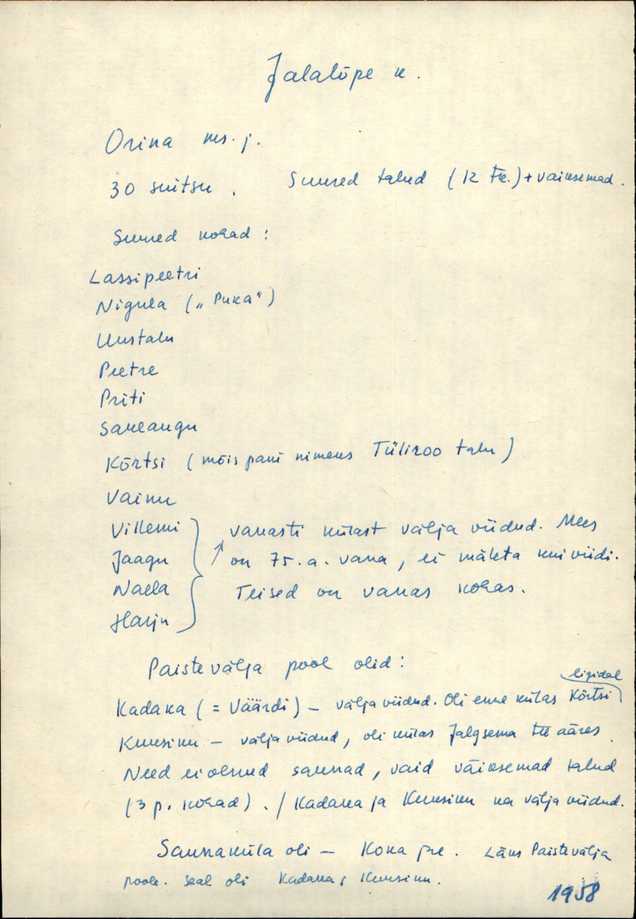 Jalalõpe k.
Orina ms. j.
30 suitsu. Suured talud (12 tk.) + väiksemad.
Suured kohad:
Lassipeetri
Nigula („Puka“)
Uustalu
Peetre
Priti
Saueaugu
Kõrtsi (mõis pani nimeks Tüliroo talu)
Vainu
Villemi vanasti külast välja viidud. Mees
Jaagu on 75.a. vana, ei mäleta kui viidi.
Naela Teised on vanas kohas.
Harju
Paistevälja pool olid:
ligidal
Kadaka (= Väärdi) – välja viidud. Oli enne külas Kõrtsi
Kuusiku – välja viidud, oli külas Jalgsema tee ääres.
Need ei olnud saunad, vaid väiksemad talud
(3 p. kohad). / Kadaka ja Kuusiku ka välja viidud.
Saunaküla oli – Koka Läks Paistevälja
poole. Seal oli Kadaka, Kuusiku.
1958